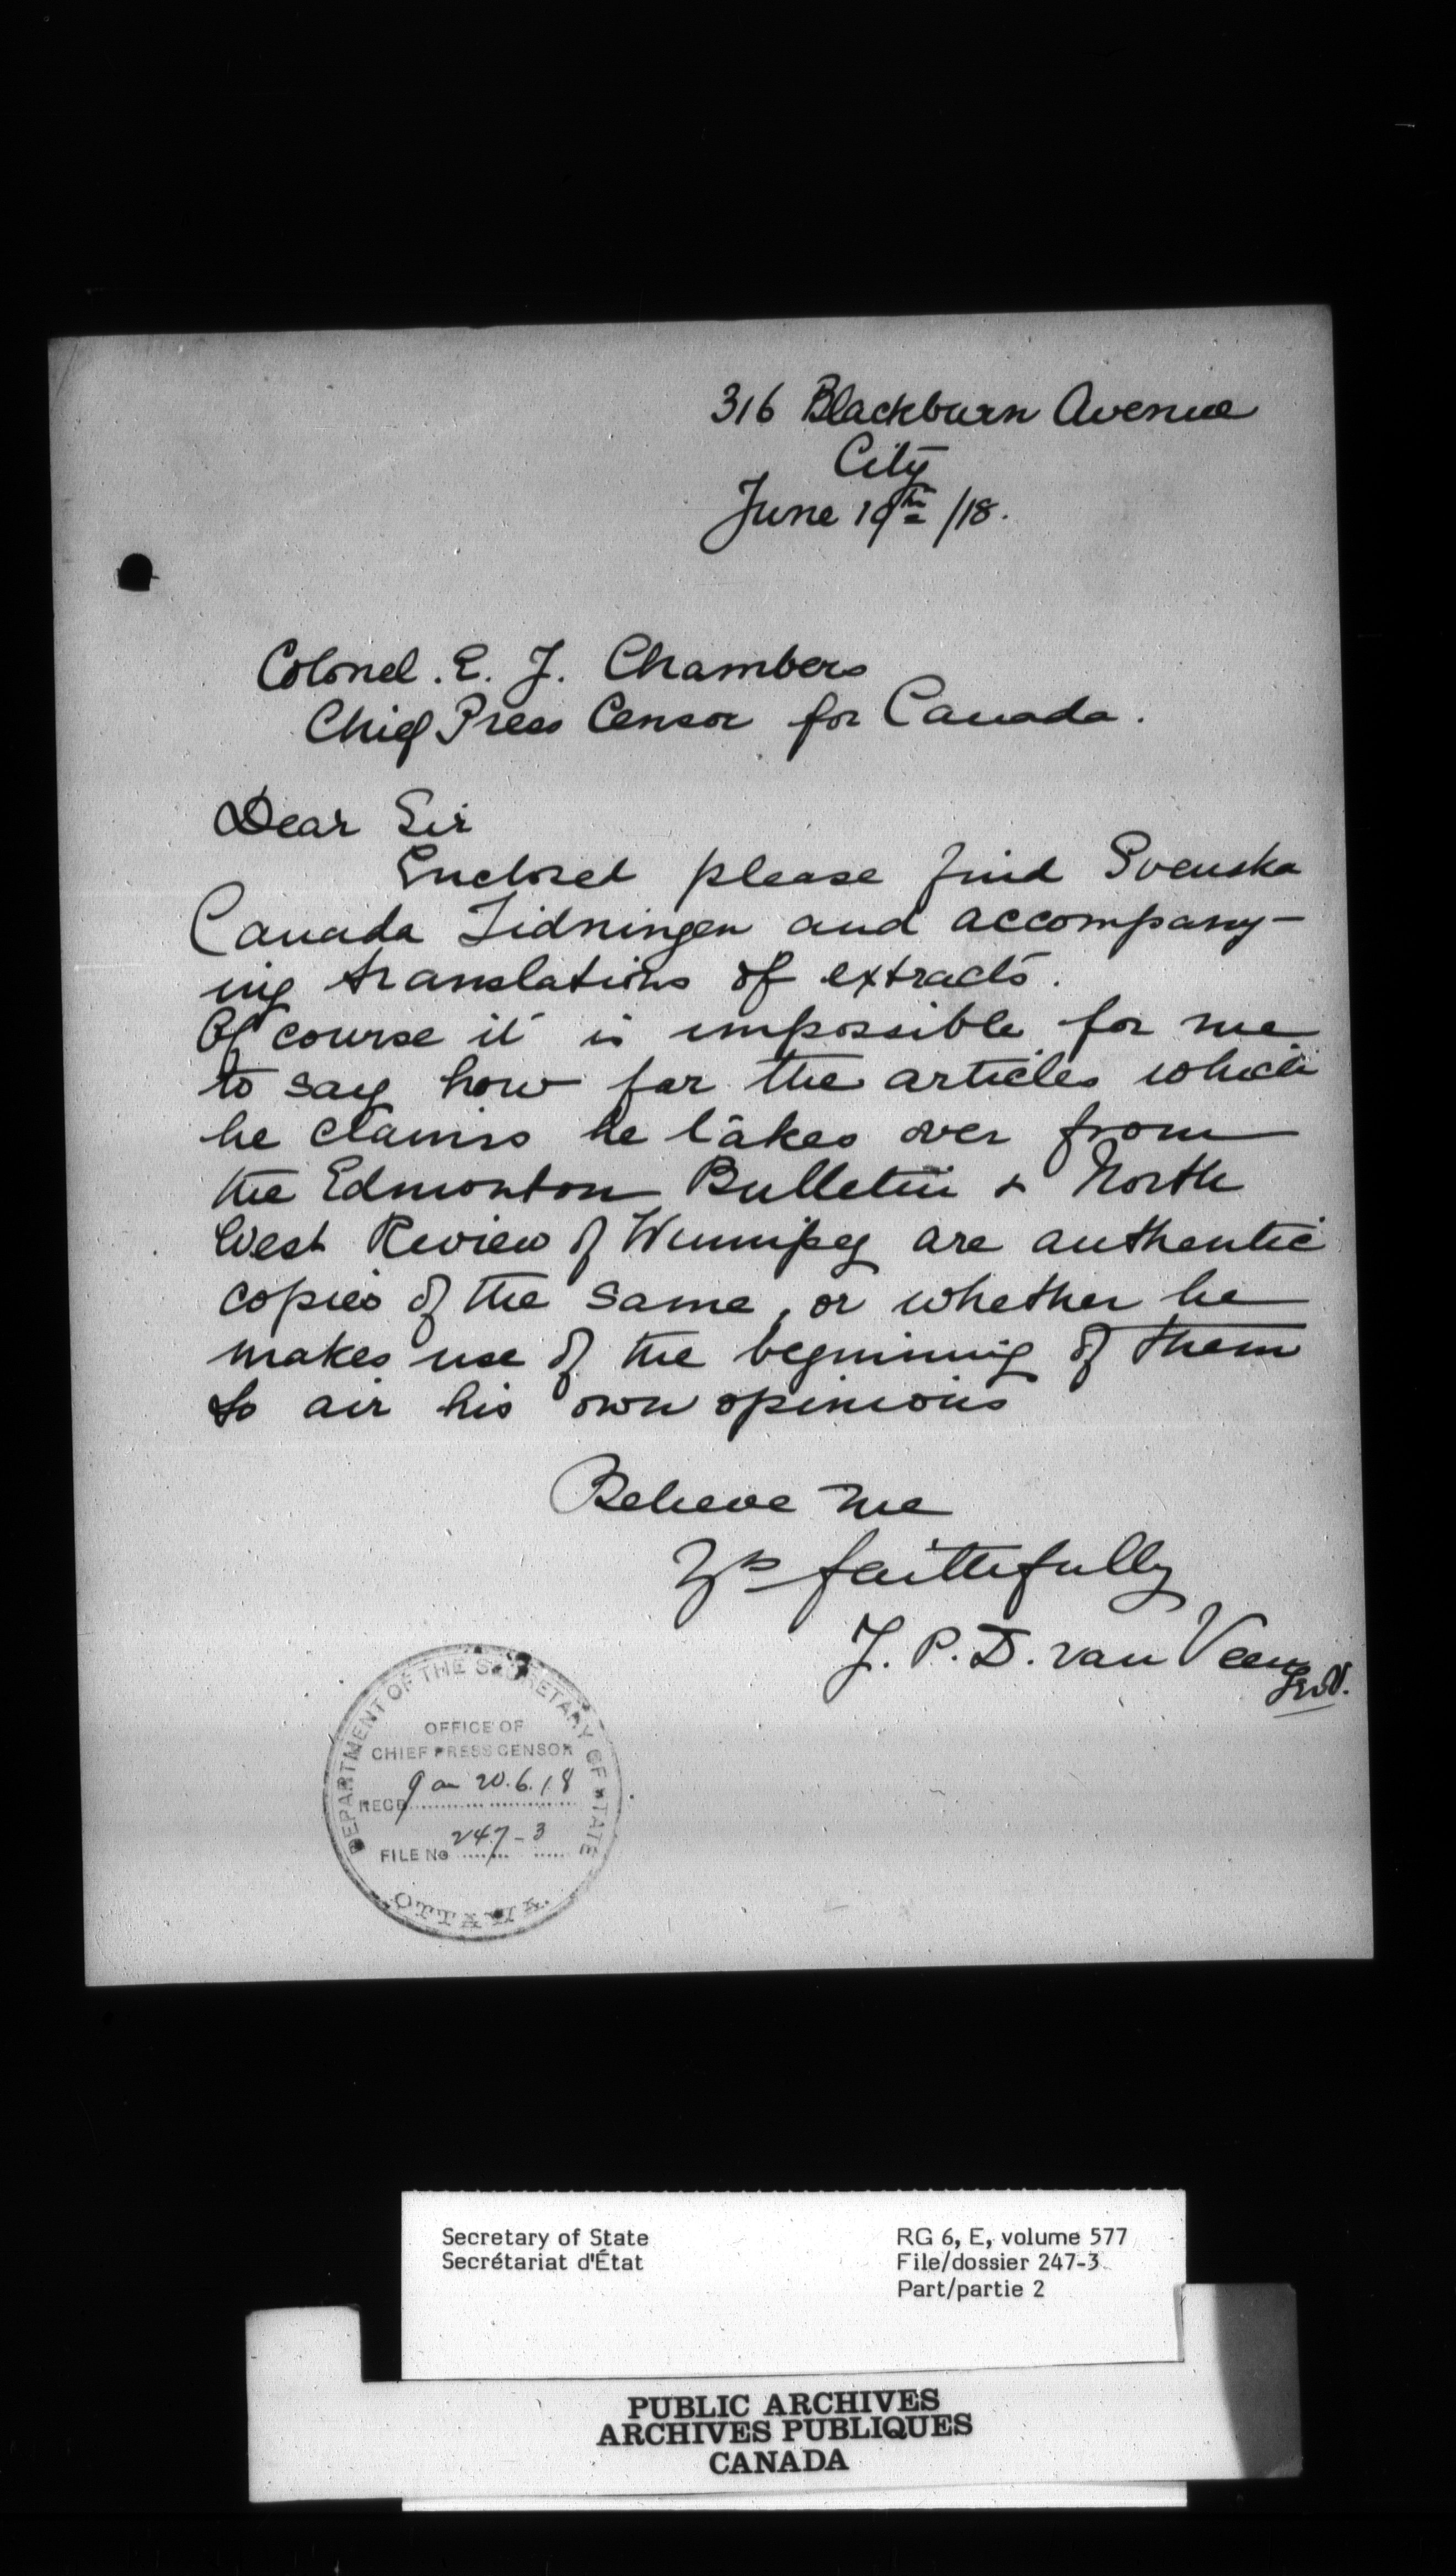 316 Blackburn Avenue
City
June 19th /18.
Colonel. E. J. Chambers
Chief Press Censor for Canada.
Dear Sir
Enclosed please find Svenska
Canada Tidningen and accompany-
ing translations of extracts.
Of course it is impossible for me
to say how far the articles which
he claims he takes over from
the Edmonton Bulletin & North
West Review of Winnipeg are authentic
copies of the same, or whether he
makes use of the beginning of them
to air his own opinions
Believe me
Yrs faithfully
J. P. D. van Veen
DEPARTMENT OF THE SECRETARY OF STATE
OFFICE OF
CHIEF PRESS CENSOR
RECD 9 am 20.6.18
FILE No 247-3
OTTAWA.
Secretary of State
Secrétariat d'État
RG 6, E, volume 577
File/dossier 247-3
Part/partie 2
PUBLIC ARCHIVES
ARCHIVES PUBLIQUES
CANADA